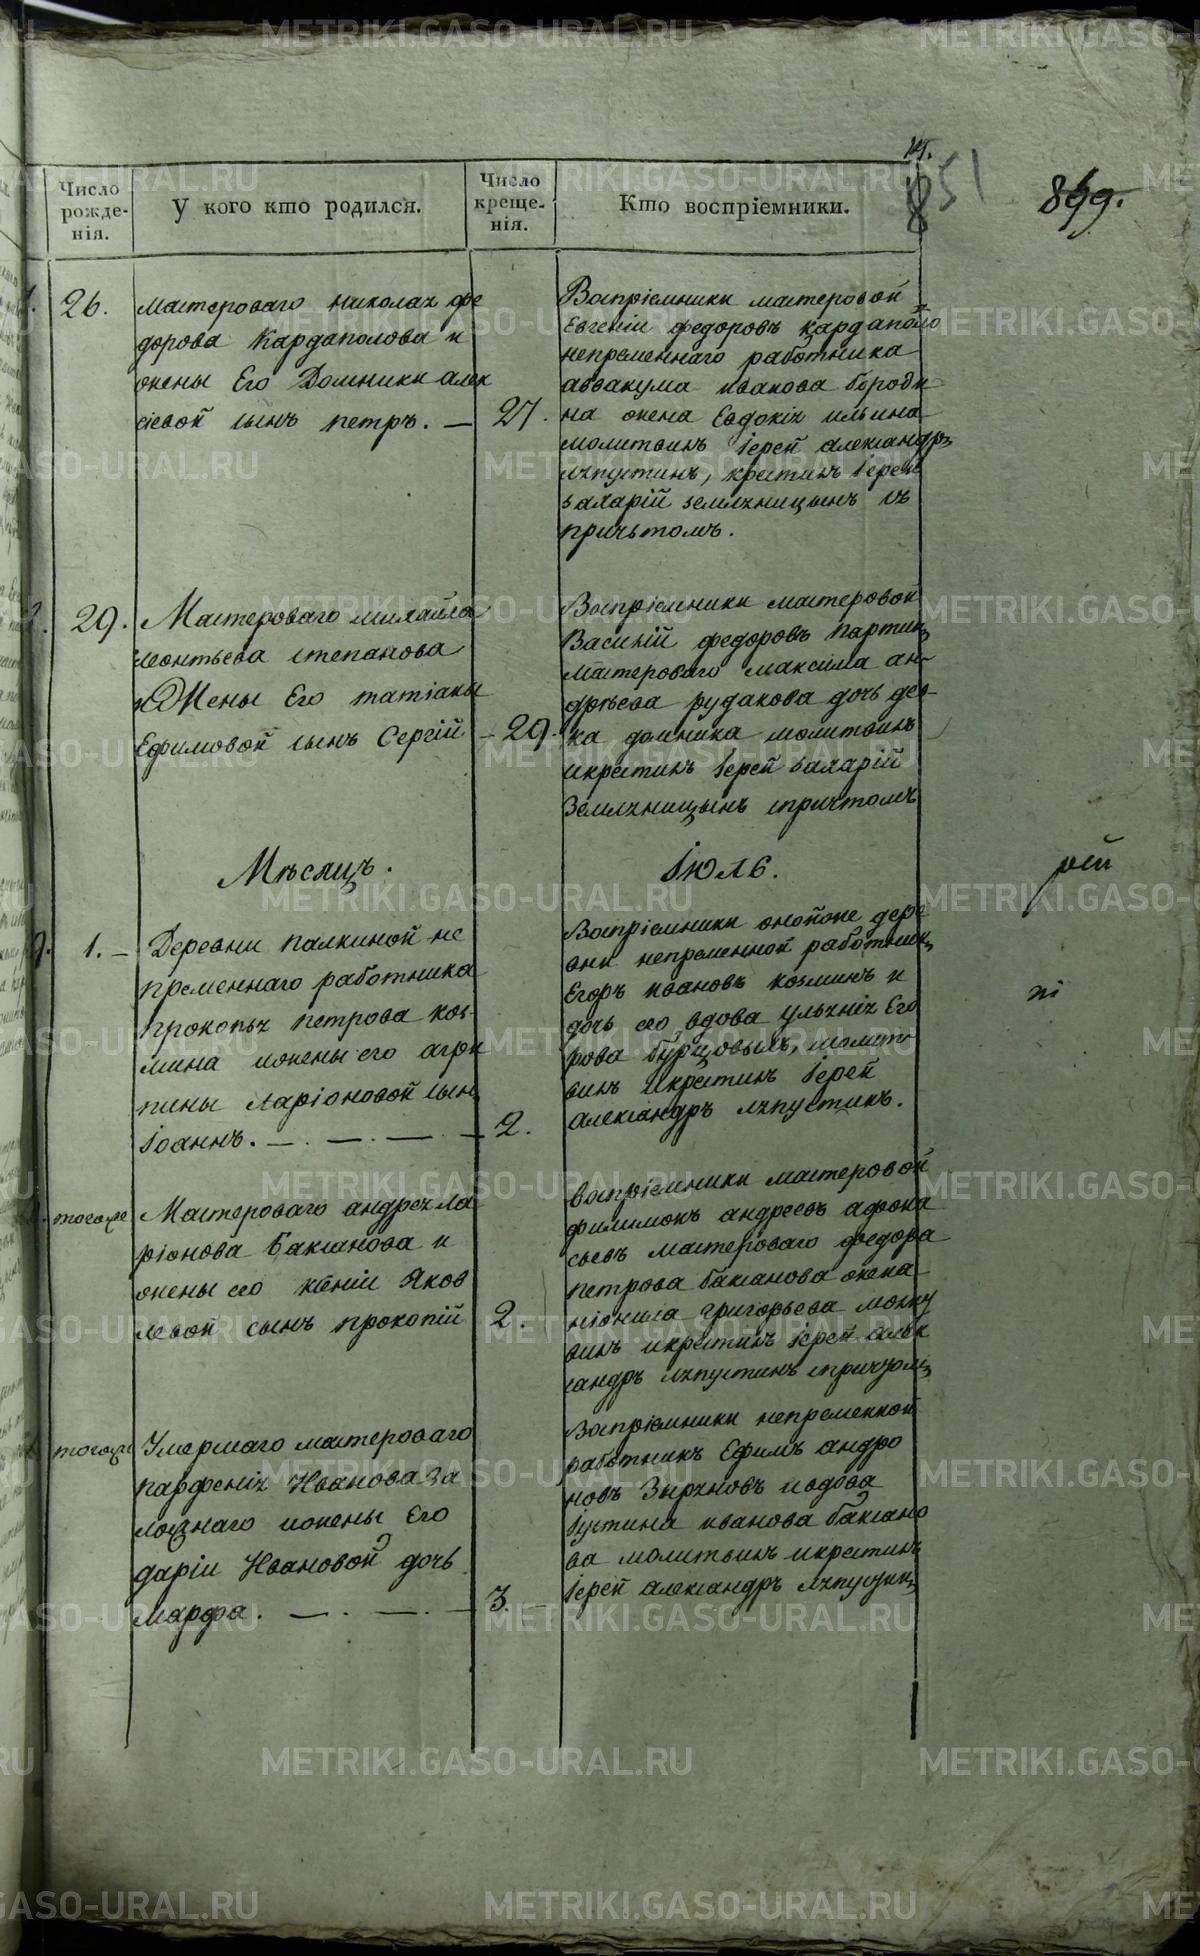 851
899.
Число рожде-нія.
У кого кто родился.
Число креще-нія.
Кто воспріемники.
26.
мастероваго николая фе
дорова Кардаполова и
жены Его Домники алек
сіевой сынъ петръ. —
27.
Воспріемники мастеровой
Евгеніи федоровъ кардаполо
непременнаго работника
аввакума иванова бороди
на жена Евдокія ильина
молитвилъ іерей александръ
ляпустинъ, крестилъ іерей
захарій земляницынъ съ
причьтомъ.
29.
Мастероваго михайла
леонтьева степанова
и Жены Его татіаны
Ефимовой сынъ Сергій
29.
Воспріемники мастеровой
Василій федоровъ партин
мастероваго максима ан-
дреева рудакова дочь дев-
ка домника молитвилъ
икрестилъ іерей захарій
Земляницынъ спричтомъ
Мѣсяцъ.
Іюль.
1. —
Деревни палкиной не
пременнаго работника
прокопья петрова коз-
мина ижены его агри
пины ларіоновой сынъ
іоаннъ. —. —. —. —
2.
Воспріемники онойже дере
вни непременной работникъ
Егоръ ивановъ козминъ и
дочь его вдова ульянія Его
рова бурцовыхъ, молит
вилъ икрестилъ іерей
александръ ляпустинъ.
тогоже
Мастероваго андрея ла
ріонова Баксанова и
жены его ксеніи Яков
левой сынъ прокопій
2.
воспріемники мастеровой
филимонъ андреевъ афона
сьевъ мастероваго федора
петрова баксанова жена
неонила григорьева молит
вилъ икрестилъ іерей алек
сандръ ляпустинъ спричтомъ
тогоже
Умершаго мастероваго
парфенія Иванова За
ложнаго ижены Его
даріи Ивановой дочь
марфа. —. —. —
3. —
Воспріемники непременной
работникъ Ефимъ андро
новъ Зыряновъ ивдова
іустина иванова баксано
ва молитвилъ икрестилъ
іерей александръ ляпустинъ
METRIKI.GASO-URAL.RU